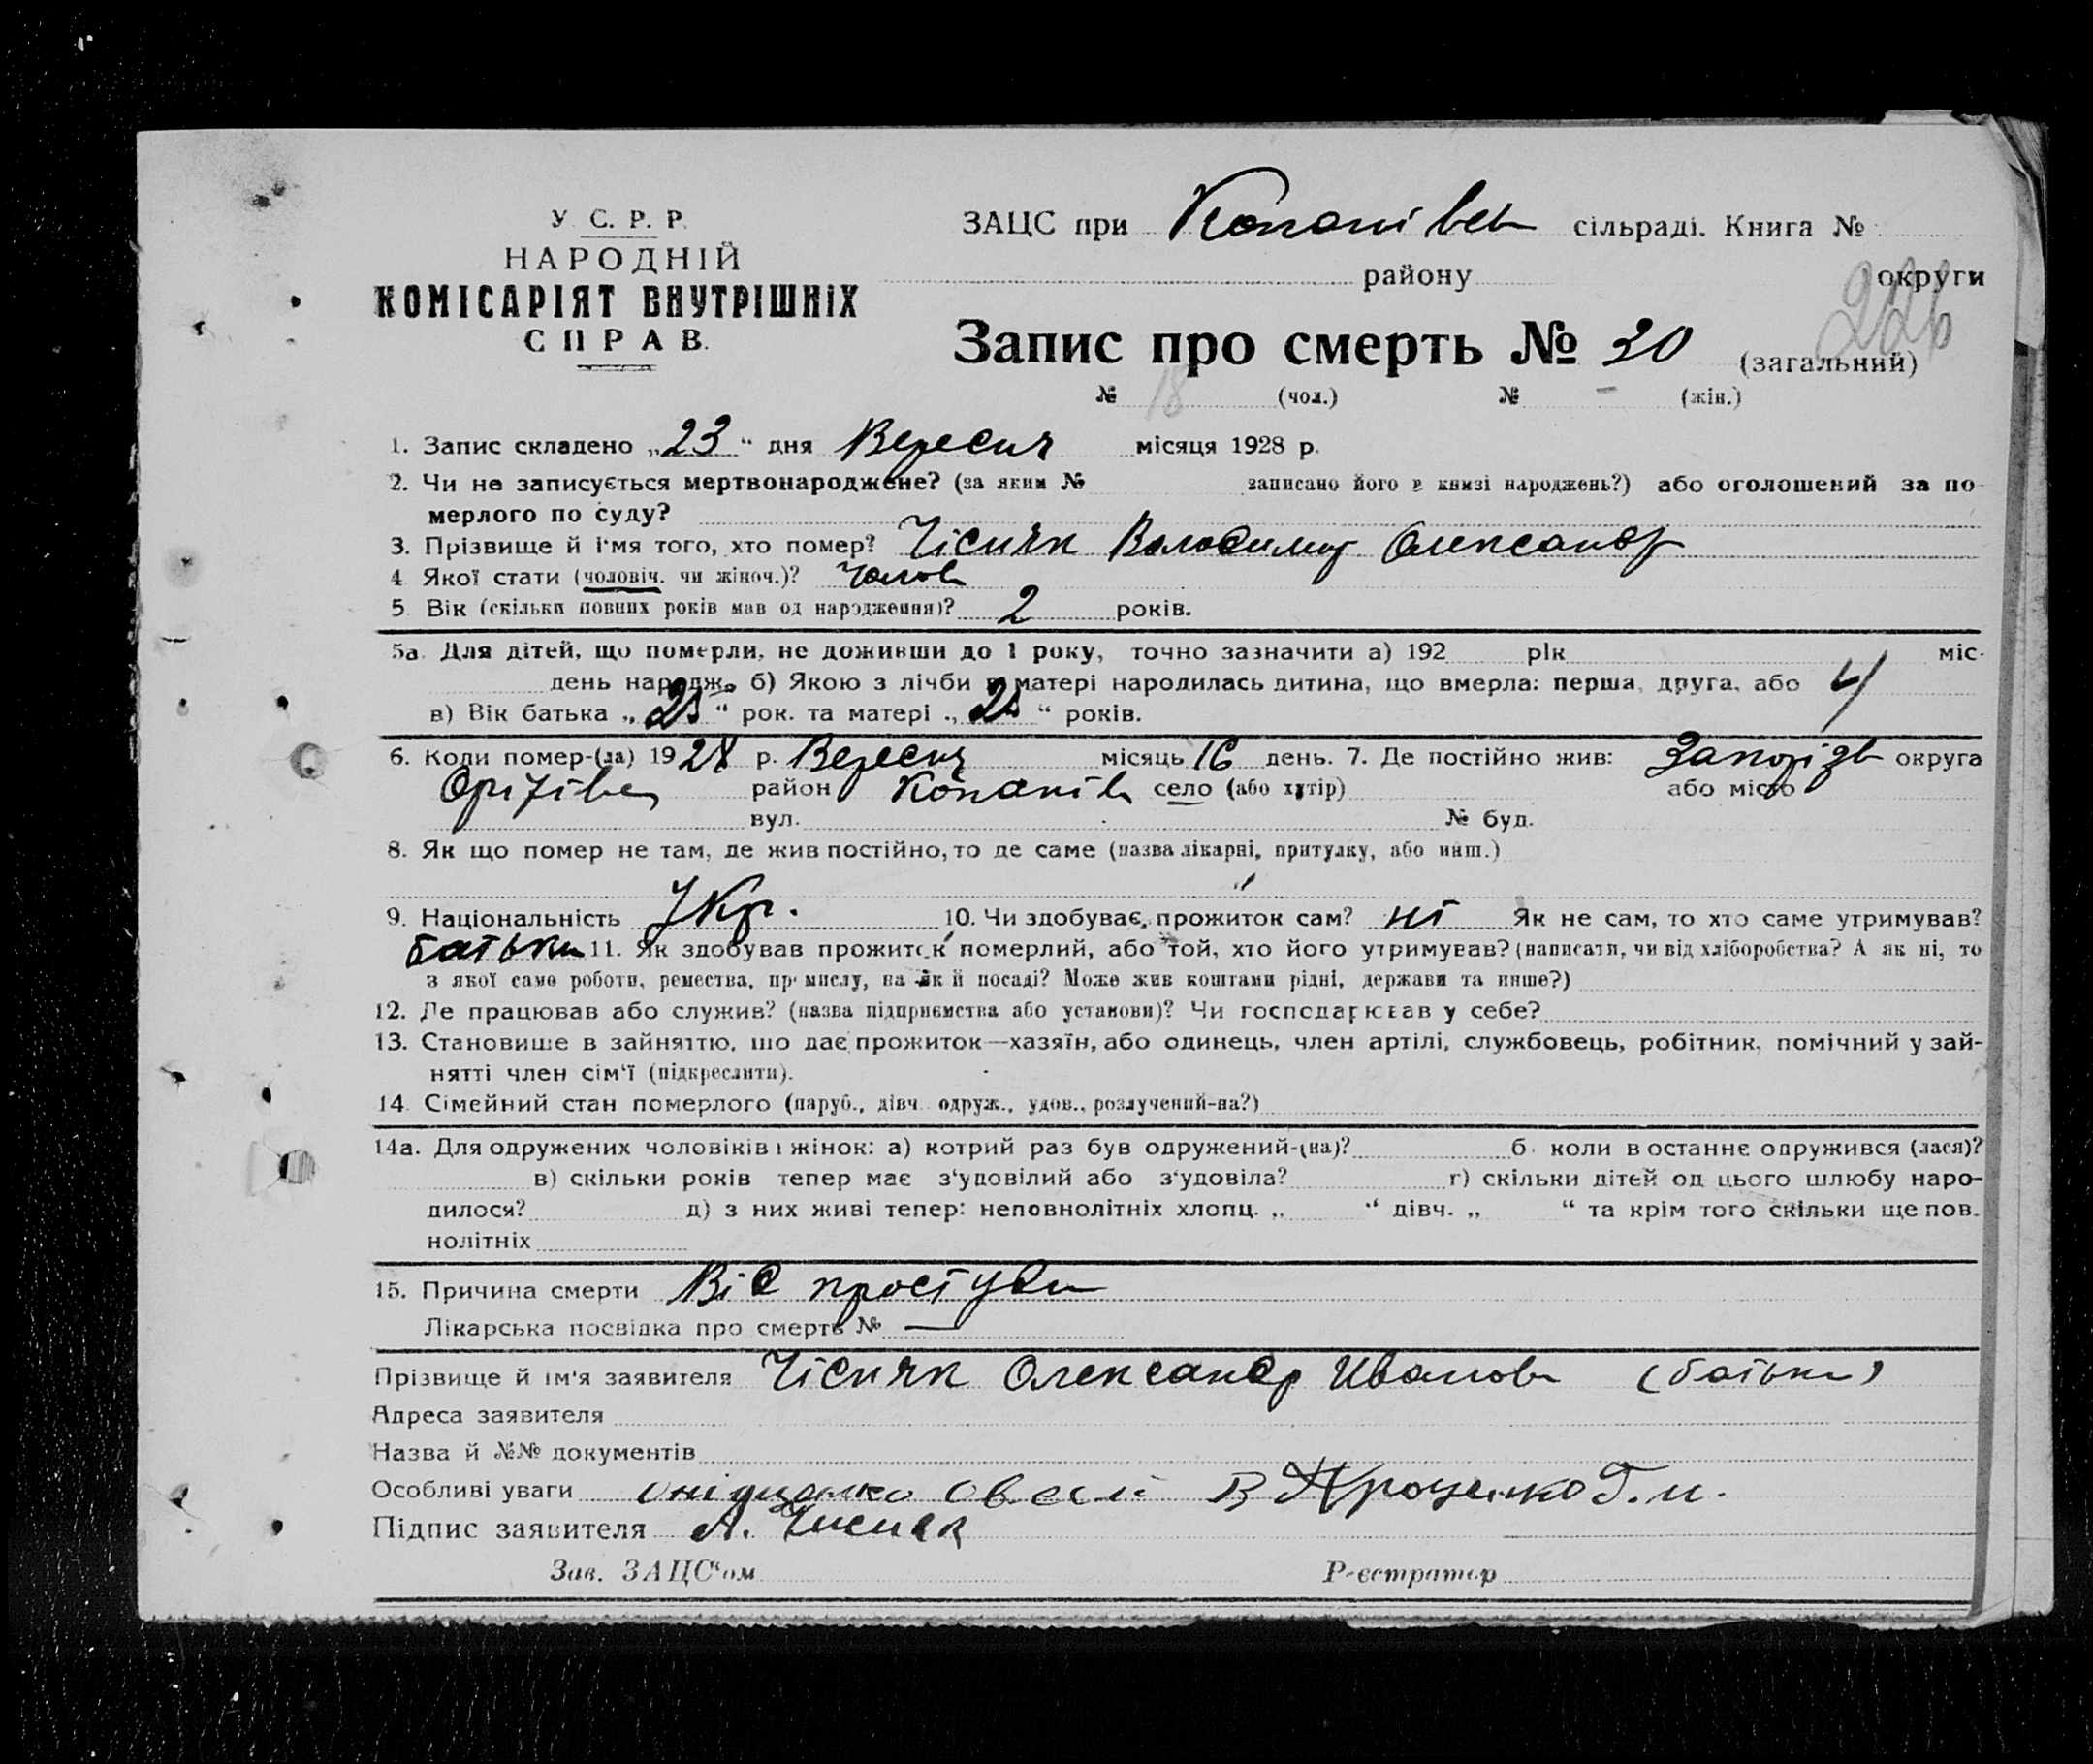 У. С. Р. Р.
НАРОДНІЙ
КОМІСАРІЯТ ВНУТРІШНІХ
СПРАВ.
ЗАЦС при Копанівськ сільраді. Книга №
району округи
226
Запис про смерть № 20 (загальний)
№ 18 (чол.) № – (жін.)
1. Запис складено „23“ дня Вересня місяця 1928 р.
2. Чи не записується мертвонароджене? (за яким № записано його в книзі народжень?) або оголошений за по
мерлого по суду?
3. Прізвище й ім'я того, хто помер? Чісняк Володимир Олександр
4. Якої стати (чоловіч. чи жіноч.)? Чолов
5. Вік (скільки повних років мав од народження)? 2 років.
5а. Для дітей, що померли, не доживши до 1 року, точно зазначити а) 192 рік міс.
день народж. б) Якою з лічби в матері народилась дитина, що вмерла: перша, друга, або 4
в) Вік батька „ “ рок. та матері „ “ років.
6. Коли помер-(ла) 1928 р. Вересня місяць 16 день. 7. Де постійно жив: Запорізь округа
Оріхівськ район Копанів село (або хутір) або місто
вул. № буд.
8. Як що помер не там, де жив постійно, то де саме (назва лікарні, притулку, або инш.)
9. Національність Укр. 10. Чи здобуває прожиток сам? ні Як не сам, то хто саме утримував?
батьки 11. Як здобував прожиток померлий, або той, хто його утримував? (написати, чи від хліборобства? А як ні, то
з якої саме роботи, ремества, промислу, на якій посаді? Може жив коштами рідні, держави та инше?)
12. Де працював або служив? (назва підприємства або установи)? Чи господарював у себе?
13. Становише в зайняттю, що дає прожиток—хазяїн, або одинець, член артілі, службовець, робітник, помічний у зай-
нятті член сім'ї (підкреслити).
14. Сімейний стан померлого (паруб., дівч. одруж., удов., розлучений-на?)
14а. Для одружених чоловіків і жінок: а) котрий раз був одружений-(на)? б. коли в останнє одружився (лася)?
в) скільки років тепер має з'удовілий або з'удовіла? г) скільки дітей од цього шлюбу наро-
дилося? д) з них живі тепер: неповнолітніх хлопц. „ “ дівч. „ “ та крім того скільки ще пов.
нолітніх
15. Причина смерти Від простуди
Лікарська посвідка про смерть № —
Прізвище й ім'я заявителя Чісняк Олександр Иванов (батько)
Адреса заявителя
Назва й №№ документів
Особливі уваги
Підпис заявителя А. Чисняк
Зав. ЗАЦС'ом Реєстратор